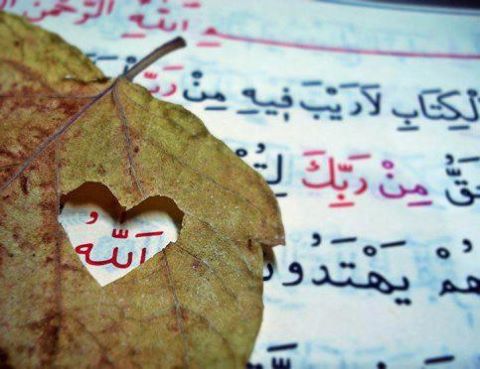 مِ اللّٰهِ الرَّحْمٰنِ
لْكِتَابِ لَارَيْبَ فِيهِ مِنْ رَبِّ
حَقُّ مِنْ رَبِّكَ لِتُنْ
هُمْ يَهْتَدُونَ اَللّٰهُ